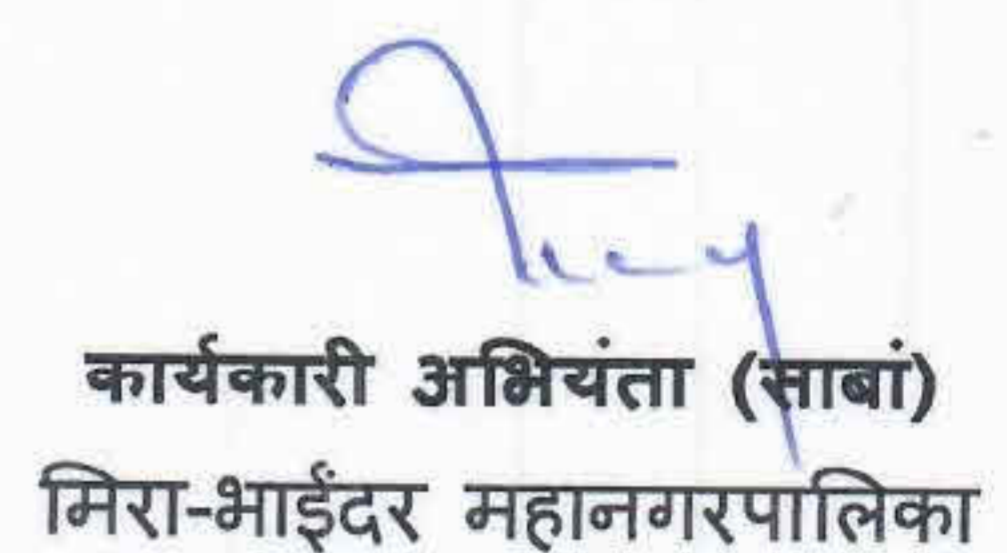 कार्यकारी अभियंता (साबां)
मिरा-भाईंदर महानगरपालिका